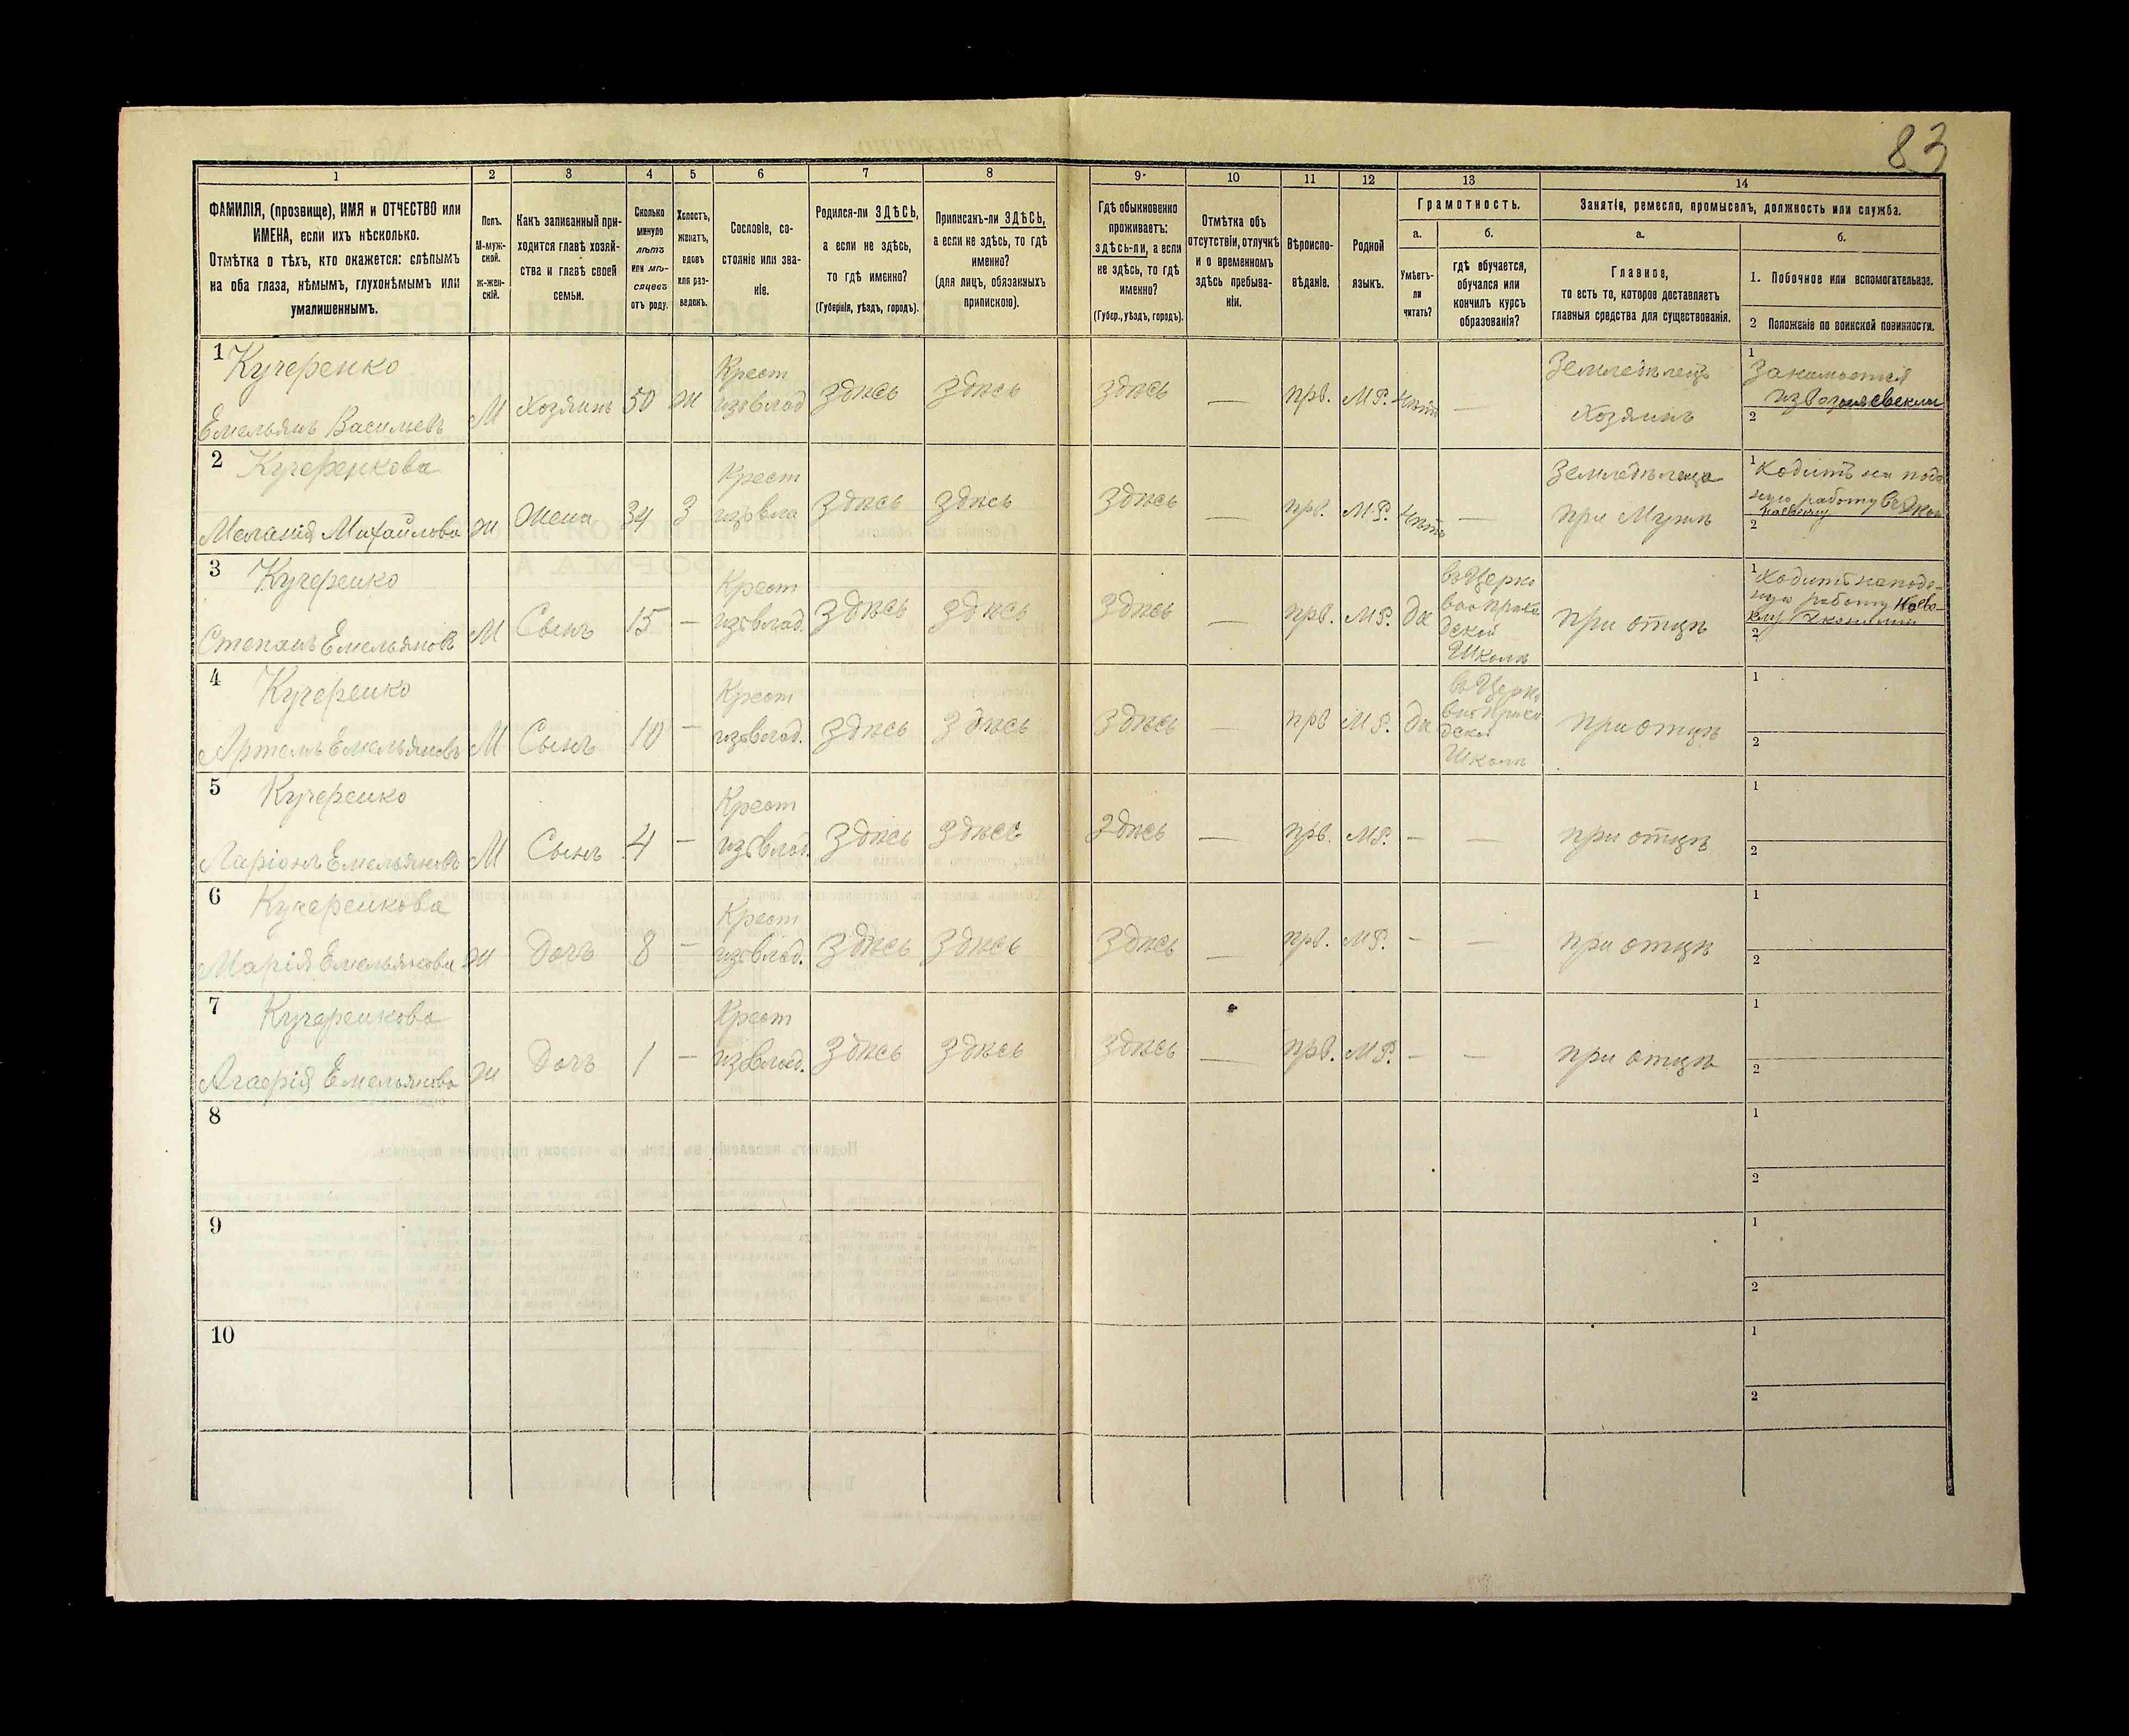 83
1 2 3 4 5 6 7 8 9 10 11 12 13 14
ФАМИЛІЯ, (прозвище), ИМЯ и ОТЧЕСТВО или
ИМЕНА, если ихъ нѣсколько.
Отмѣтка о тѣхъ, кто окажется: слѣпымъ
на оба глаза, нѣмымъ, глухонѣмымъ или
умалишеннымъ.
Полъ.
М-муж-
ской.
ж-жен-
скій.
Какъ записанный при-
ходится главѣ хозяй-
ства и главѣ своей
семьи.
Сколько
минуло
лѣтъ
или мѣ-
сяцевъ
отъ роду.
Холостъ,
женатъ,
вдовъ
или раз-
веденъ.
Сословіе, со-
стояніе или зва-
ніе.
Родился-ли ЗДѢСЬ,
а если не здѣсь,
то гдѣ именно?
(Губернія, уѣздъ, городъ).
Приписанъ-ли ЗДѢСЬ,
а если не здѣсь, то гдѣ
именно?
(для лицъ, обязанныхъ
припискою).
Гдѣ обыкновенно
проживаетъ:
здѣсь-ли, а если
не здѣсь, то гдѣ
именно?
(Губер., уѣздъ, городъ).
Отмѣтка объ
отсутствіи, отлучкѣ
и о временномъ
здѣсь пребыва-
ніи.
Вѣроиспо-
вѣданіе.
Родной
языкъ.
Грамотность.
а.
Умѣетъ-
ли
читать?
б.
гдѣ обучается,
обучался или
кончилъ курсъ
образованія?
Занятіе, ремесло, промыселъ, должность или служба.
а.
Главное,
то есть то, которое доставляетъ
главныя средства для существованія.
б.
1. Побочное или вспомогательное.
2 Положеніе по воинской повинности.
1 Кучеренко
Емельянъ Васильевъ
М
Хозяинъ
50
ж
Крест
изъ влад
здѣсь
здѣсь
здѣсь
—
прв.
М.Р.
нѣтъ
—
Земледѣлецъ
хозяинъ
1
2
2 Кучеренкова
Меланія Михайлова
ж
Жена
34
З
Крест
изъ вла
здѣсь
здѣсь
здѣсь
—
прв.
М.Р.
нѣтъ
—
Земледѣлица
при Мужѣ
1 Ходитъ на поде
ную работу
2
3 Кучеренко
Степанъ Емельяновъ
М
Сынъ
15
—
Крест
изъ влад.
здѣсь
здѣсь
здѣсь
—
прв.
М.Р.
да
въ Церко
вно прихо
дской
Школѣ
при отцѣ
1 Ходитъ на поде-
ную работу
2
4 Кучеренко
Артемъ Емельяновъ
М
Сынъ
10
—
Крест
изъ влад.
здѣсь
здѣсь
здѣсь
—
прв
М.Р.
да
въ Церко
вно прихо
дской
Школѣ
при отцѣ
1
2
5 Кучеренко
Ларіонъ Емельяновъ
М
Сынъ
4
—
Крест
изъ влад.
здѣсь
здѣсь
здѣсь
—
прв.
М.Р.
—
—
при отцѣ
1
2
6 Кучеренкова
Марія Емельянова
ж
Дочь
8
—
Крест
изъ влад.
здѣсь
здѣсь
здѣсь
—
прв.
М.Р.
—
—
при отцѣ
1
2
7 Кучеренкова
Емельянова
ж
Дочь
1
—
Крест
изъ влад.
здѣсь
здѣсь
здѣсь
—
прв.
М.Р.
—
—
при отцѣ
1
2
8
1
2
9
1
2
10
1
2